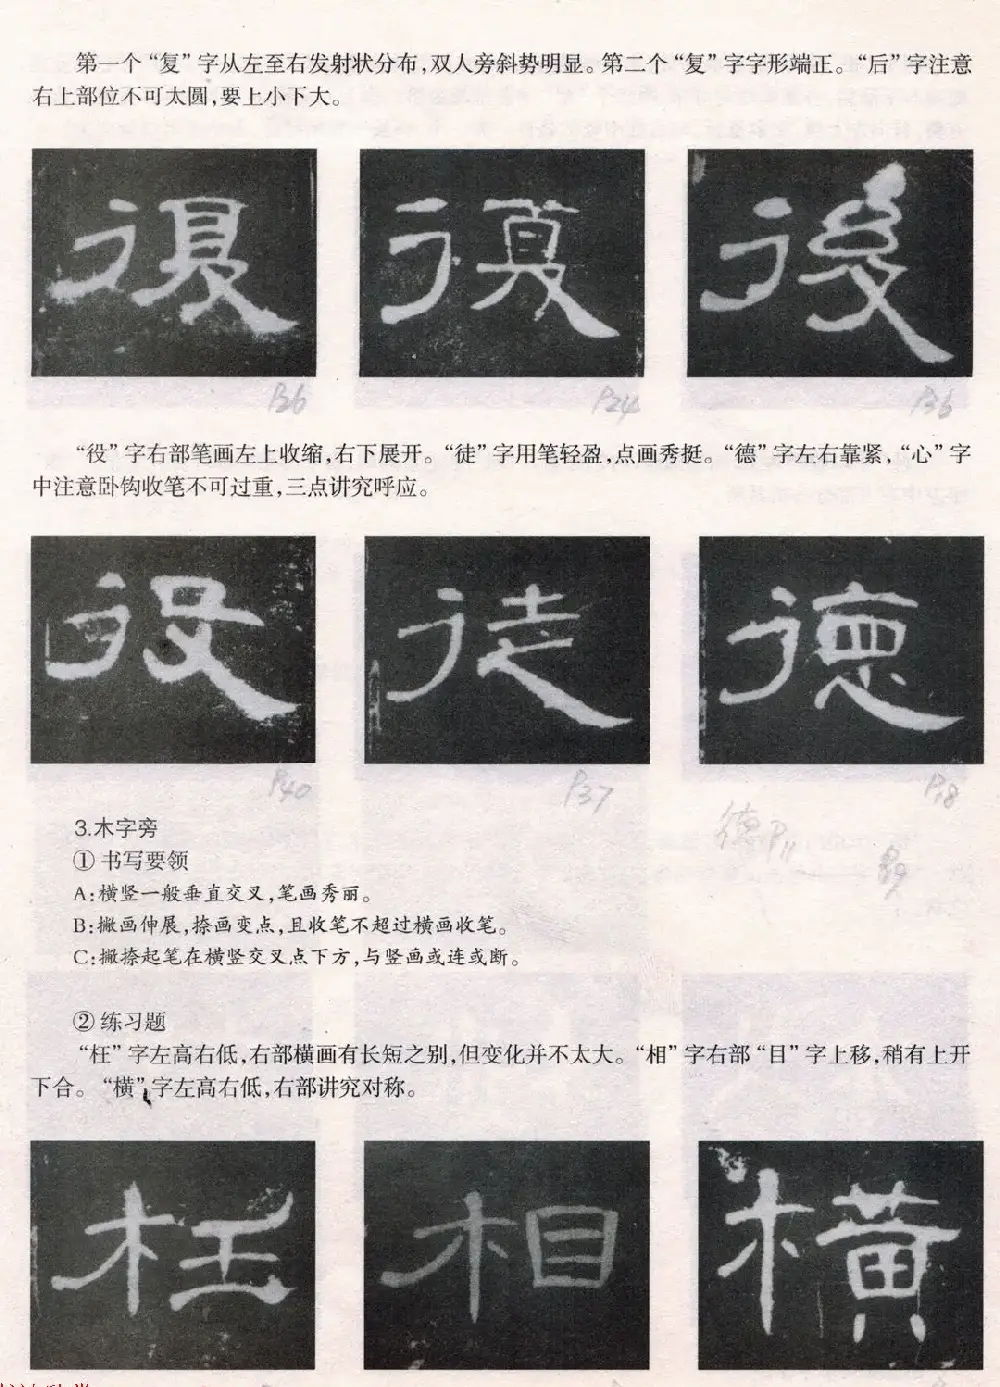 第一个“复”字从左至右发射状分布,双人旁斜势明显。第二个“复”字字形端正。“后”字注意
右上部位不可太圆,要上小下大。
復 復 後
P26 P24 P36
“役”字右部笔画左上收缩,右下展开。“徒”字用笔轻盈,点画秀挺。“德”字左右靠紧,“心”字
中注意卧钩收笔不可过重,三点讲究呼应。
役 徒 德
P40 P37 P18
德P11
3.木字旁
①书写要领
A:横竖一般垂直交叉,笔画秀丽。
B:撇画伸展,捺画变点,且收笔不超过横画收笔。
C:撇捺起笔在横竖交叉点下方,与竖画或连或断。
②练习题
“枉”字左高右低,右部横画有长短之别,但变化并不太大。“相”字右部“目”字上移,稍有上开
下合。“横”字左高右低,右部讲究对称。
枉 相 横